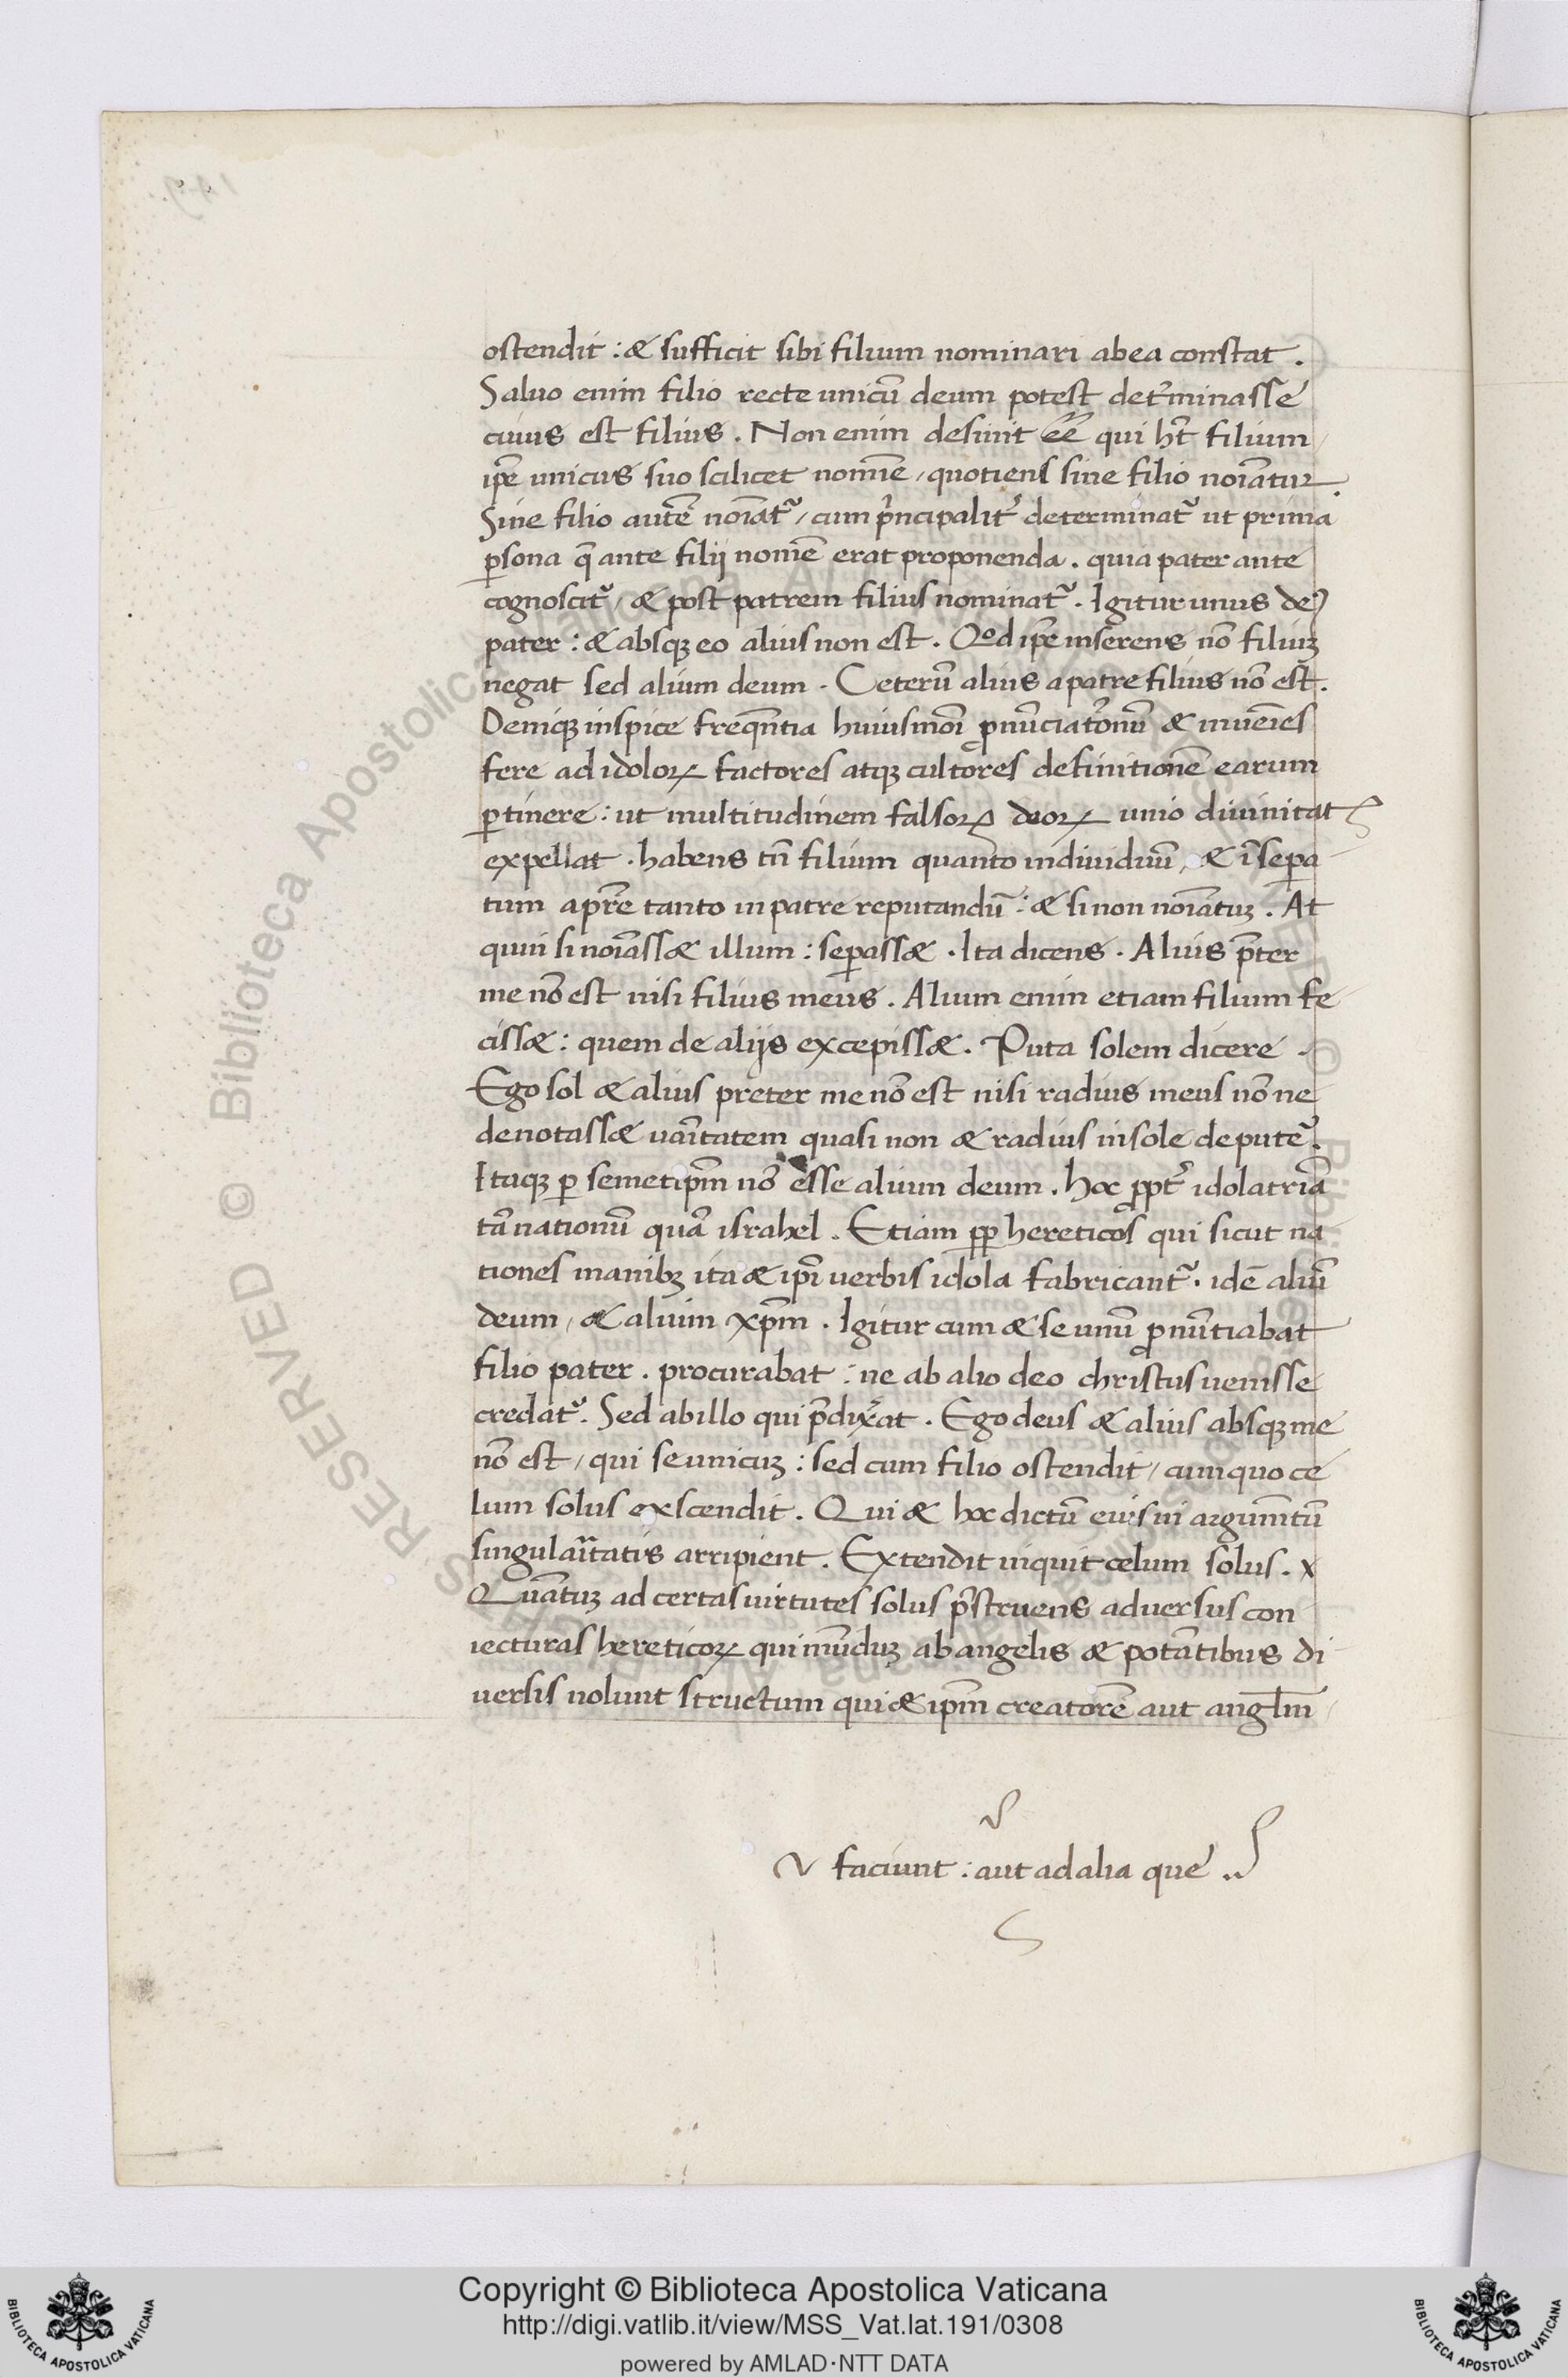 ostendit : & sufficit sibi filium nominari abea constat .
Saluo enim filio recte unicũ deum potest det̃minasse
cuius est filius . Non enim desinit ẽe qui hñt filium
ip̃e unicus suo scilicet nomĩe / quotiens sine filio noĩatur .
Sine filio autẽ noĩat᷑ / cum p̃ncipalit̃ determinat᷑ ut prima
ꝑsona q̃ ante filij nomẽ erat proponenda . quia pater ante
cognoscit᷑ / & post patrem filius nominat᷑ . Igitur unus deꝰ
pater : & absqꝫ eo alius non est . Qod ip̃e inserens nõ filiuꝫ
negat sed alium deum . Ceterũ alius apatre filius nõ est .
Deniqꝫ inspice freq̃ntia huiusmõi ꝓnũciatõnũ & inuẽies
fere ad idoloꝝ factores atqꝫ cultores definitionẽ earum
ꝑtinere : ut multitudinem falsoꝝ deoꝝ unio diuinitatꝭ
expellat . habens tñ filium quanto indiuiduũ / & ĩsepa
tum apr̃e tanto in patre reputandũ : & si non noĩatuꝫ . At
quin si noĩass& illum : sepass& . Ita dicens . Alius p̃ter
me nõ est nisi filius meus . Alium enim etiam filium fe
ciss& : quem de alijs excepiss& . Puta solem dicere .
Ego sol & alius preter me nõ est nisi radius meus nõ ne
denotass& uaĩtatem quasi non & radius insole deputet᷑ .
Itaqꝫ ꝑ semetip̃m nõ esse alium deum . hoc ꝓpt̃ idolatriã
tã nationũ quã israhel . Etiam ꝓp hereticos qui sicut na
tiones manibꝫ ita & ip̃i uerbis idola fabricant᷑ . idẽ aliũ
deum / & alium xp̃m . Igitur cum & se unũ ꝓnũtiabat
filio pater . procurabat : ne ab alio deo christus uenisse
credat᷑ . Sed abillo qui p̃dix̃at . Ego deus & alius absqꝫ me
nõ est / qui se unicuꝫ : sed cum filio ostendit / cum quo ce
lum solus exscendit . Qui & hoc dictũ eius in argumñtũ
singulaĩtatis arripient . Extendit inquit celum solus . x
Quãtuꝫ ad certas uirtutes solus p̃struens aduersus con
iecturas hereticoꝝ qui mũduꝫ ab angelis & potãtibus di
uersis uolunt structum qui & ip̃m creatorẽ aut angl̃m
faciunt : aut ad alia que
Copyright © Biblioteca Apostolica Vaticana
http://digi.vatlib.it/view/MSS_Vat.lat.191/0308
powered by AMLAD·NTT DATA
BIBLIOTECA APOSTOLICA VATICANA
BIBLIOTECA APOSTOLICA VATICANA